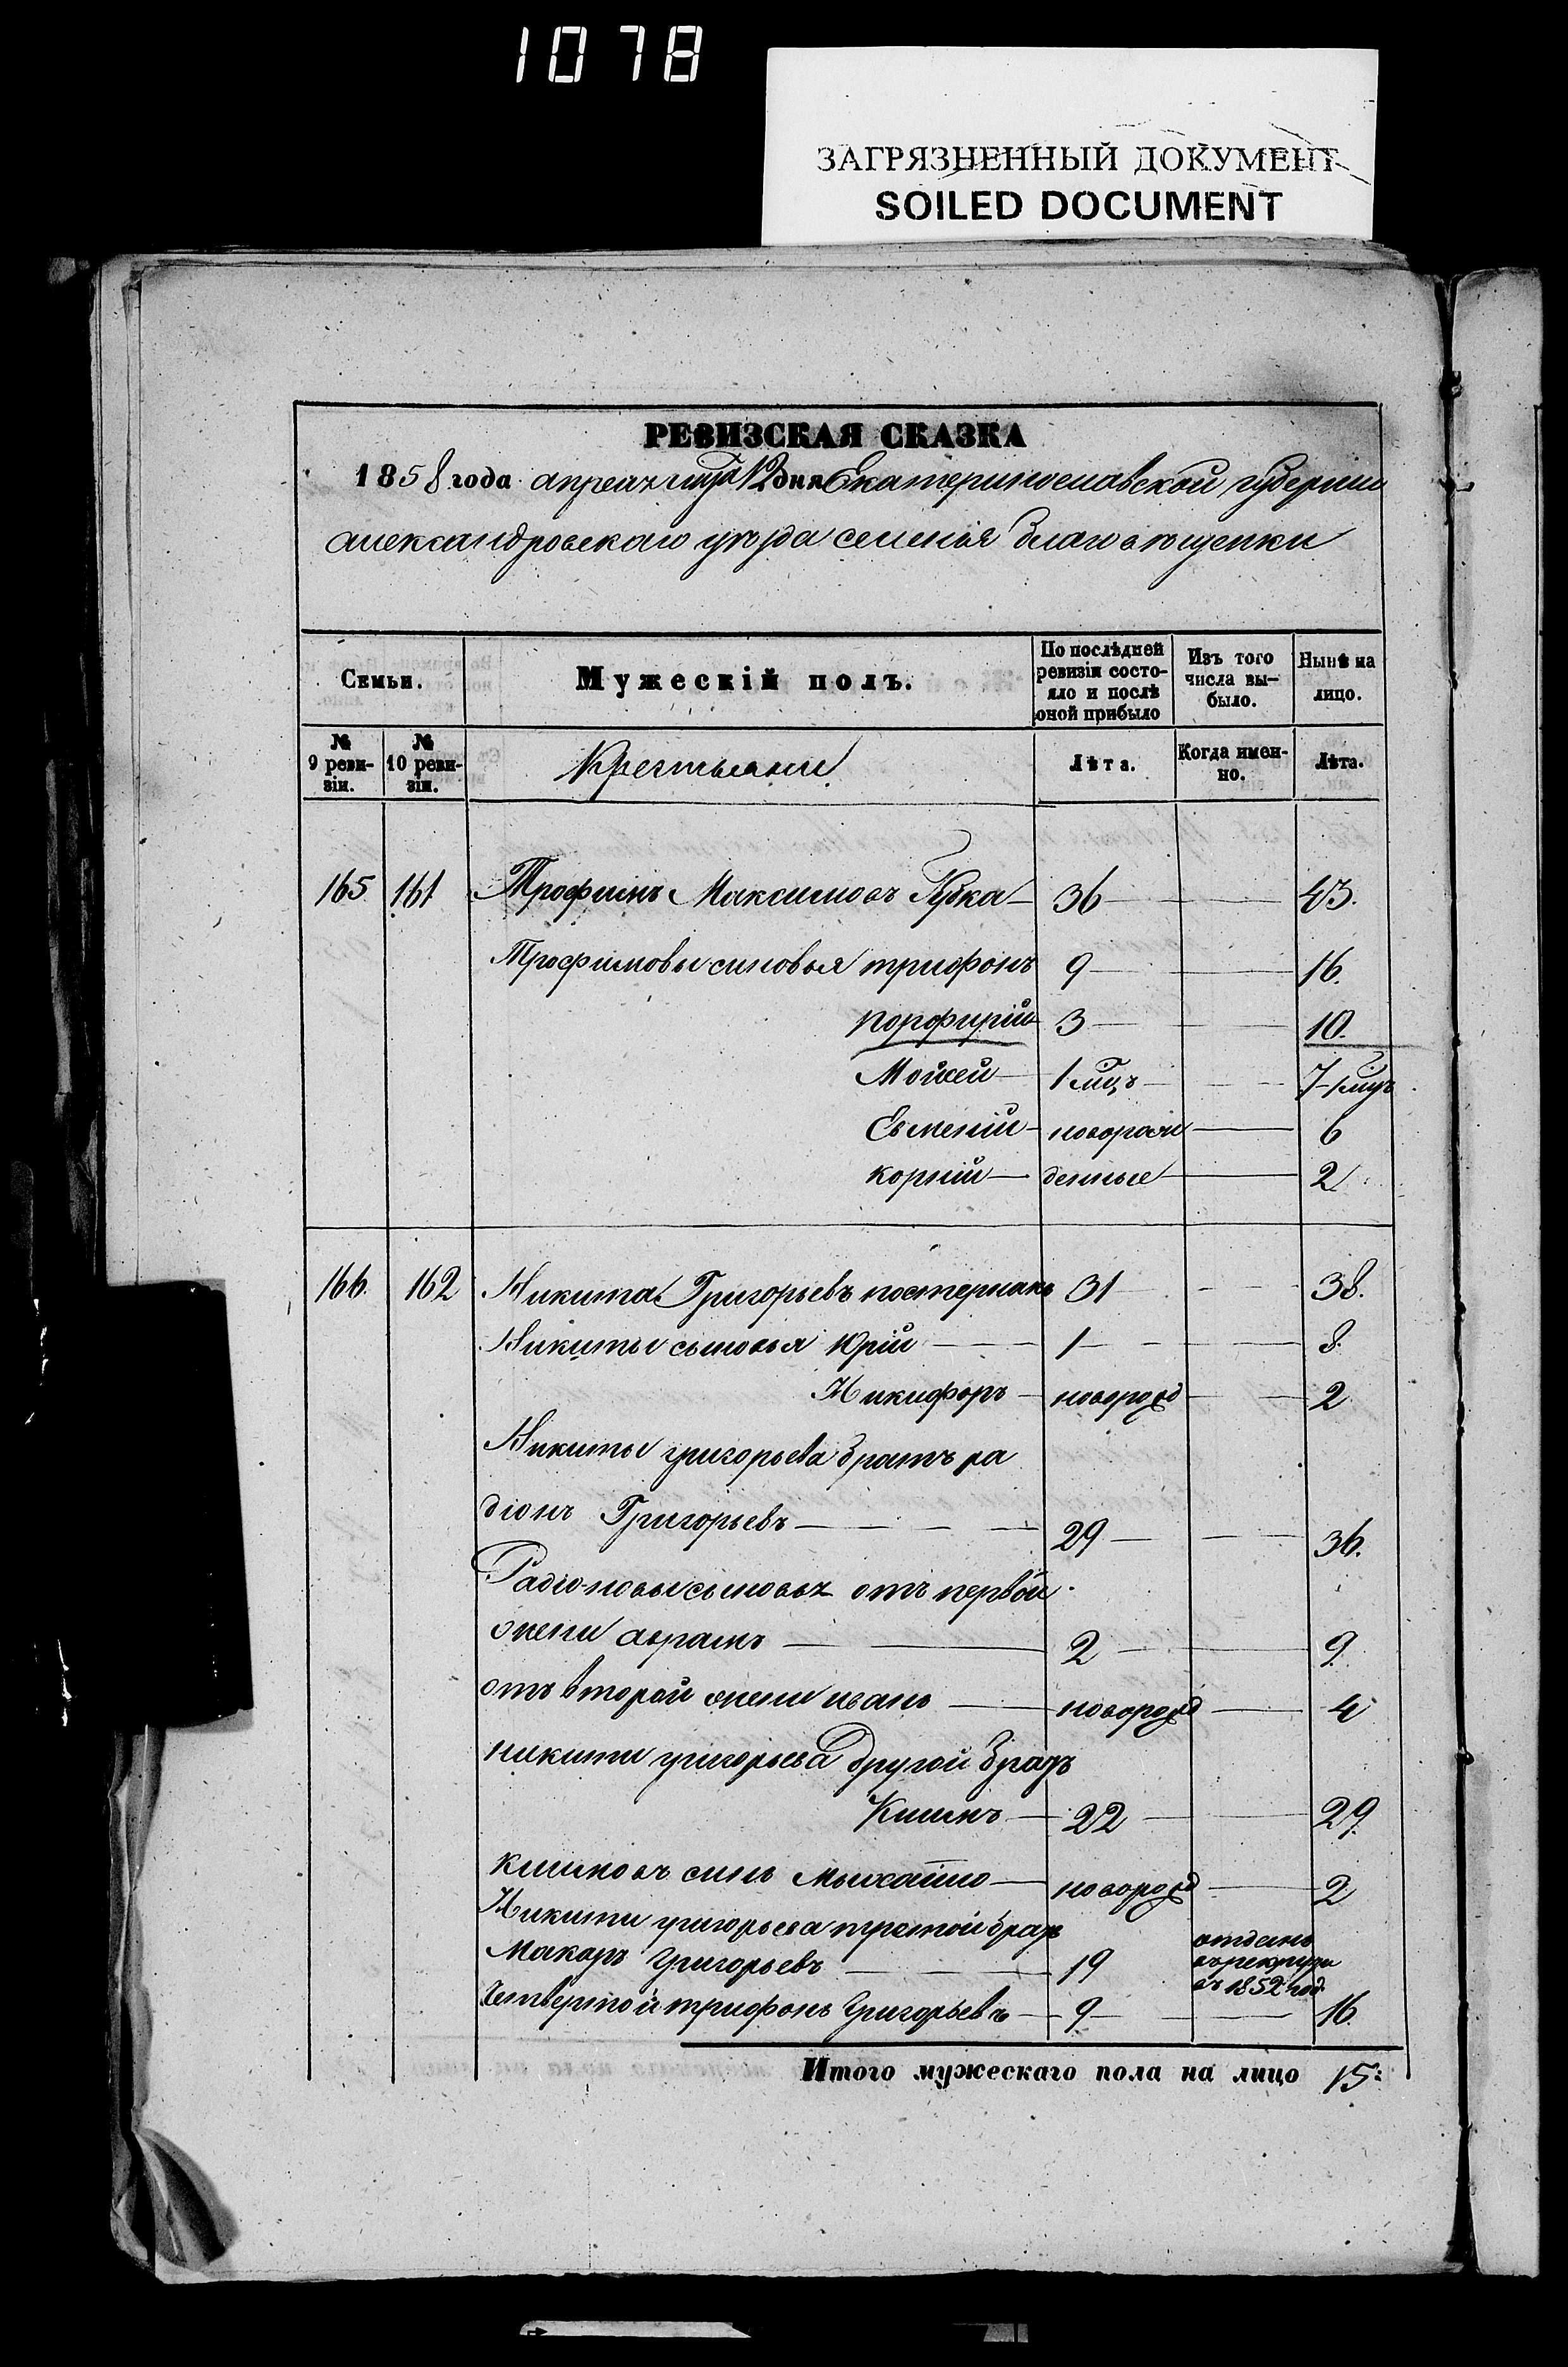 1078
ЗАГРЯЗНЕННЫЙ ДОКУМЕНТ
SOILED DOCUMENT
РЕВИЗСКАЯ СКАЗКА
1858 года апреля мца 12 дня Екатеринославской губернии
александровскаго уезда селенія благовещенки
Семьи.
Мужескій полъ.
По послѣдней ревизіи состояло и послѣ оной прибыло
Изъ того числа выбыло.
Нынѣ на лицо.
№ 9 ревизіи.
№ 10 ревизіи.
Крестьяни
Лѣта.
Когда именно.
Лѣта.
165 161 Трофимъ Максимовъ Губка 36 43.
Трофимовы синовья трифонъ 9 16.
порфирій 3 10.
Мойсей 1 мцъ 7 1 мцъ
Евменій новорож 6
корній денные 2
166. 162 Никита Григорьевъ постернакъ 31 38.
Никиты сыновья Юрій 1 8.
Никифоръ новорожд 2
Никиты григорьева братъ ра
діонъ Григорьевъ 29 36.
Радіоновы сыновья отъ первой
жени аврамъ 2 9.
отъ второй жени иванъ новорожд 4
никити григорьева другой братъ
Климъ 22 29.
климовъ синъ Мыхайло новорожд 2
Никити григорьева третой братъ
Макаръ Григорьевъ 19 отданъ въ рекруты въ 1852 год
Четвертой трифонъ Григорьевъ 9 16.
Итого мужескаго пола на лицо 15: